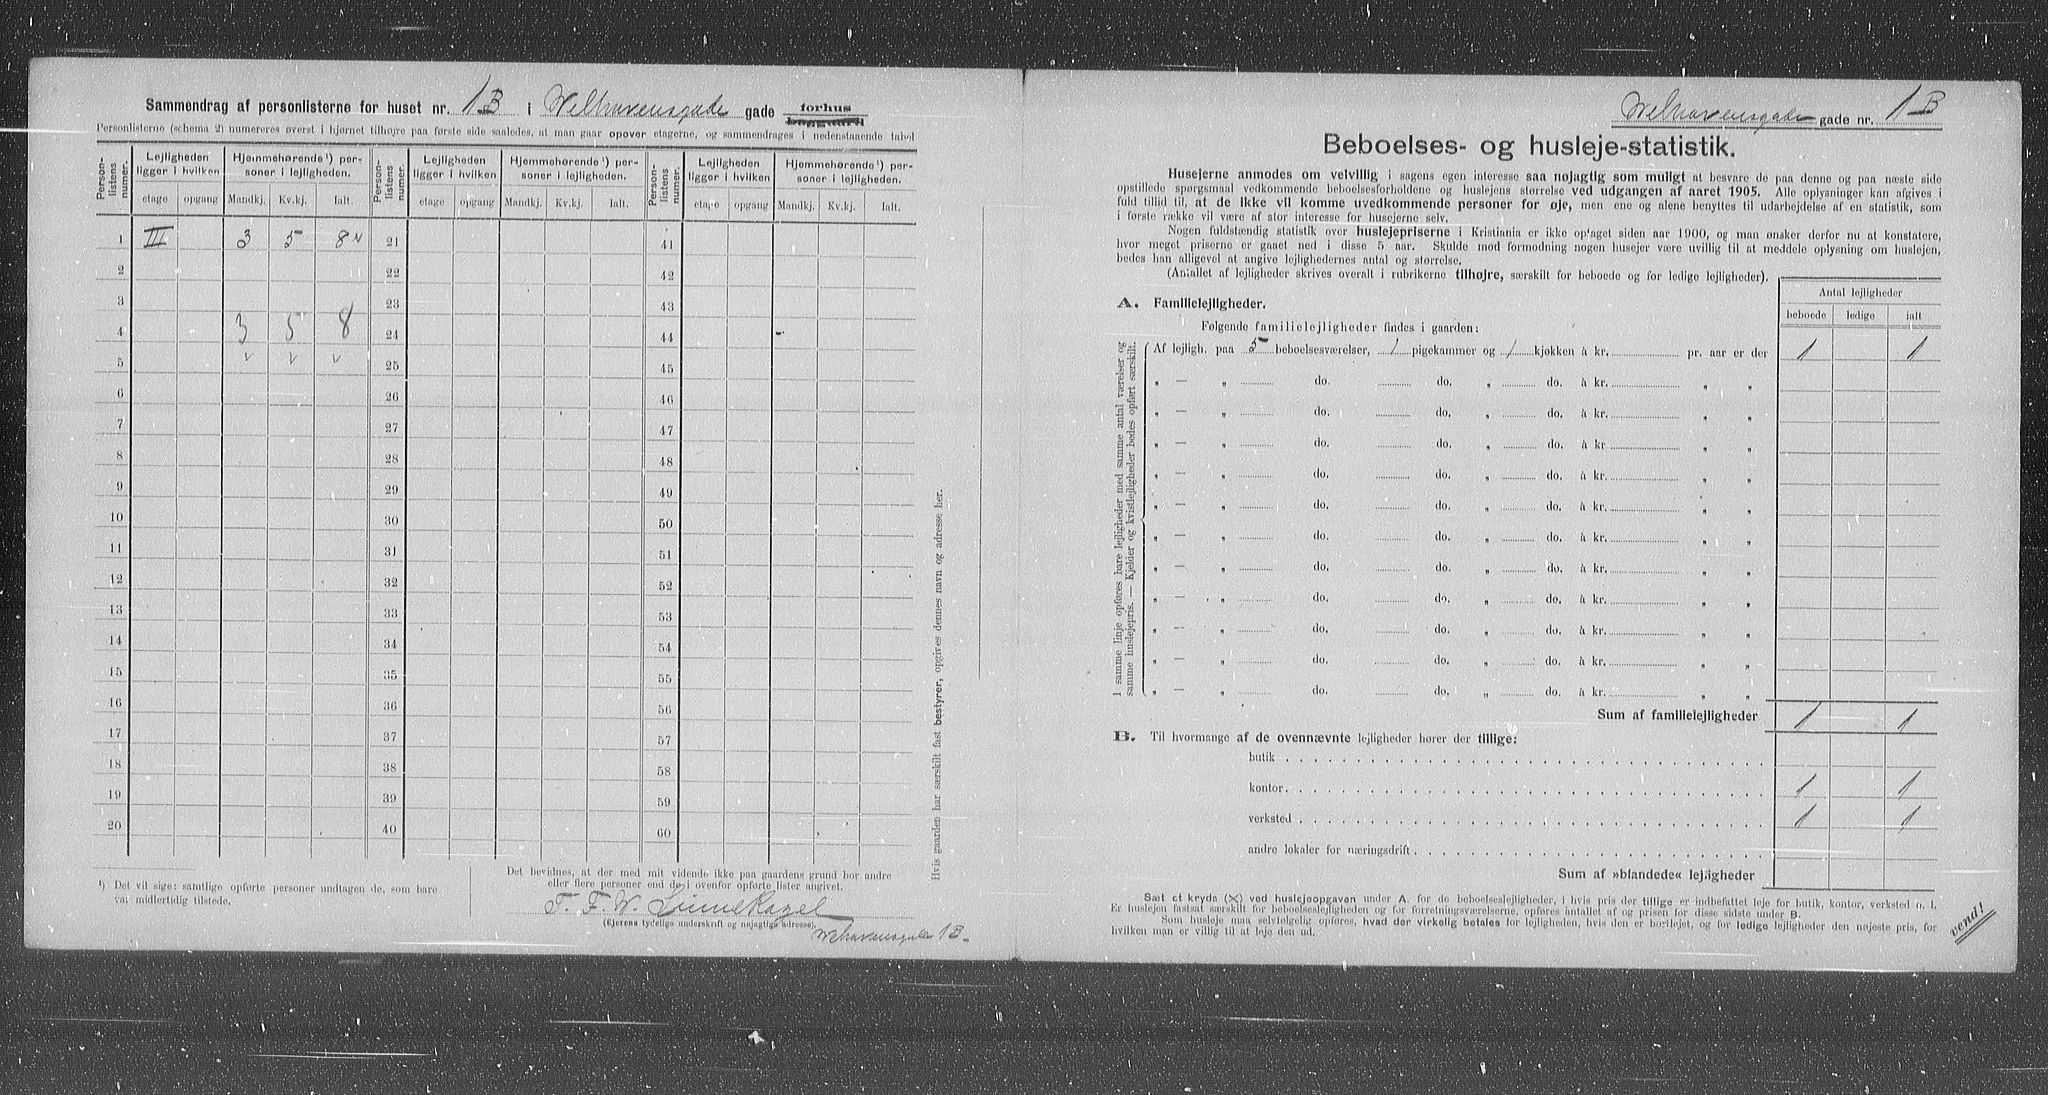 Sammendrag af personlisterne for huset nr. 1B i Welhavensgade gade forhus baggaard
Personlisterne (schema 2) numereres øverst i hjørnet tilhøjre paa første side saaledes, at man gaar opover etagerne, og sammendrages i nedenstaaende tabel
Person-listens numer. Lejligheden ligger i hvilken etage opgang Hjemmehørende¹) personer i lejligheden. Mandkj. Kv.kj. Ialt. Person-listens numer. Lejligheden ligger i hvilken etage opgang Hjemmehørende¹) personer i lejligheden. Mandkj. Kv.kj. Ialt. Person-listens numer. Lejligheden ligger i hvilken etage opgang Hjemmehørende¹) personer i lejligheden. Mandkj. Kv.kj. Ialt.
1 III 3 5 8 21 41
2 22 42
3 23 43
4 3 5 8 24 44
5 v v v 25 45
6 26 46
7 27 47
8 28 48
9 29 49
10 30 50
11 31 51
12 32 52
13 33 53
14 34 54
15 35 55
16 36 56
17 37 57
18 38 58
19 39 59
20 40 60
¹) Det vil sige: samtlige opførte personer undtagen de, som bare
var midlertidig tilstede.
Det bevidnes, at der med mit vidende ikke paa gaardens grund bor andre
eller flere personer end de i ovenfor opførte lister angivet.
F. F. W. Linnekogel
(Ejerens tydelige underskrift og nøjagtige adresse).
Welhavensgade 1B.
Hvis gaarden har særskilt fast bestyrer, opgives dennes navn og adresse her.
Welhavensgade gade nr. 1B
Beboelses- og husleje-statistik.
Husejerne anmodes om velvillig i sagens egen interesse saa nøjagtig som muligt at besvare de paa denne og paa næste side
opstillede spørgsmaal vedkommende beboelsesforholdene og huslejens størrelse ved udgangen af aaret 1905. Alle oplysninger kan afgives i
fuld tillid til, at de ikke vil komme uvedkommende personer for øje, men ene og alene benyttes til udarbejdelse af en statistik, som
i første række vil være af stor interesse for husejerne selv.
Nogen fuldstændig statistik over huslejepriserne i Kristiania er ikke optaget siden aar 1900, og man ønsker derfor nu at konstatere,
hvor meget priserne er gaaet ned i disse 5 aar. Skulde mod formodning nogen husejer være uvillig til at meddele oplysning om huslejen,
bedes han alligevel at angive lejlighedernes antal og størrelse.
(Antallet af lejligheder skrives overalt i rubrikerne tilhøjre, særskilt for beboede og for ledige lejligheder).
Antal lejligheder
beboede ledige ialt
A. Familielejligheder.
Følgende familielejligheder findes i gaarden:
I samme linje opføres bare lejligheder med samme antal værelser og
samme huslejepris. — Kjelder og kvistlejligheder bedes opført særskilt.
Af lejligh. paa 5 beboelsesværelser, 1 pigekammer og 1 kjøkken à kr. pr. aar er der 1 1
„ — „ do. do. „ do. à kr. „ „
„ — „ do. do. „ do. à kr. „ „
„ — „ do. do. „ do. à kr. „ „
„ — „ do. do. „ do. à kr. „ „
„ — „ do. do. „ do. à kr. „ „
„ — „ do. do. „ do. à kr. „ „
„ — „ do. do. „ do. à kr. „ „
„ — „ do. do. „ do. à kr. „ „
„ — „ do. do. „ do. à kr. „ „
„ — „ do. do. „ do. à kr. „ „
„ — „ do. do. „ do. à kr. „ „
Sum af familielejligheder 1 1
B. Til hvormange af de ovennævnte lejligheder hører der tillige:
butik
kontor 1 1
verksted 1 1
andre lokaler for næringsdrift
Sum af »blandede« lejligheder
Sæt et kryds (X) ved huslejeopgaven under A. for de beboelseslejligheder, i hvis pris der tillige er indbefattet leje for butik, kontor, verksted o. l.
Er huslejen fastsat særskilt for beboelseslejligheden og for forretningsværelserne, opføres antallet af og prisen for disse sidste under B.
Som husleje maa selvfølgelig opføres, hvad der virkelig betales for lejligheden, hvis den er bortlejet, og for ledige lejligheder den nøjeste pris, for
hvilken man er villig til at leje den ud.
vend!